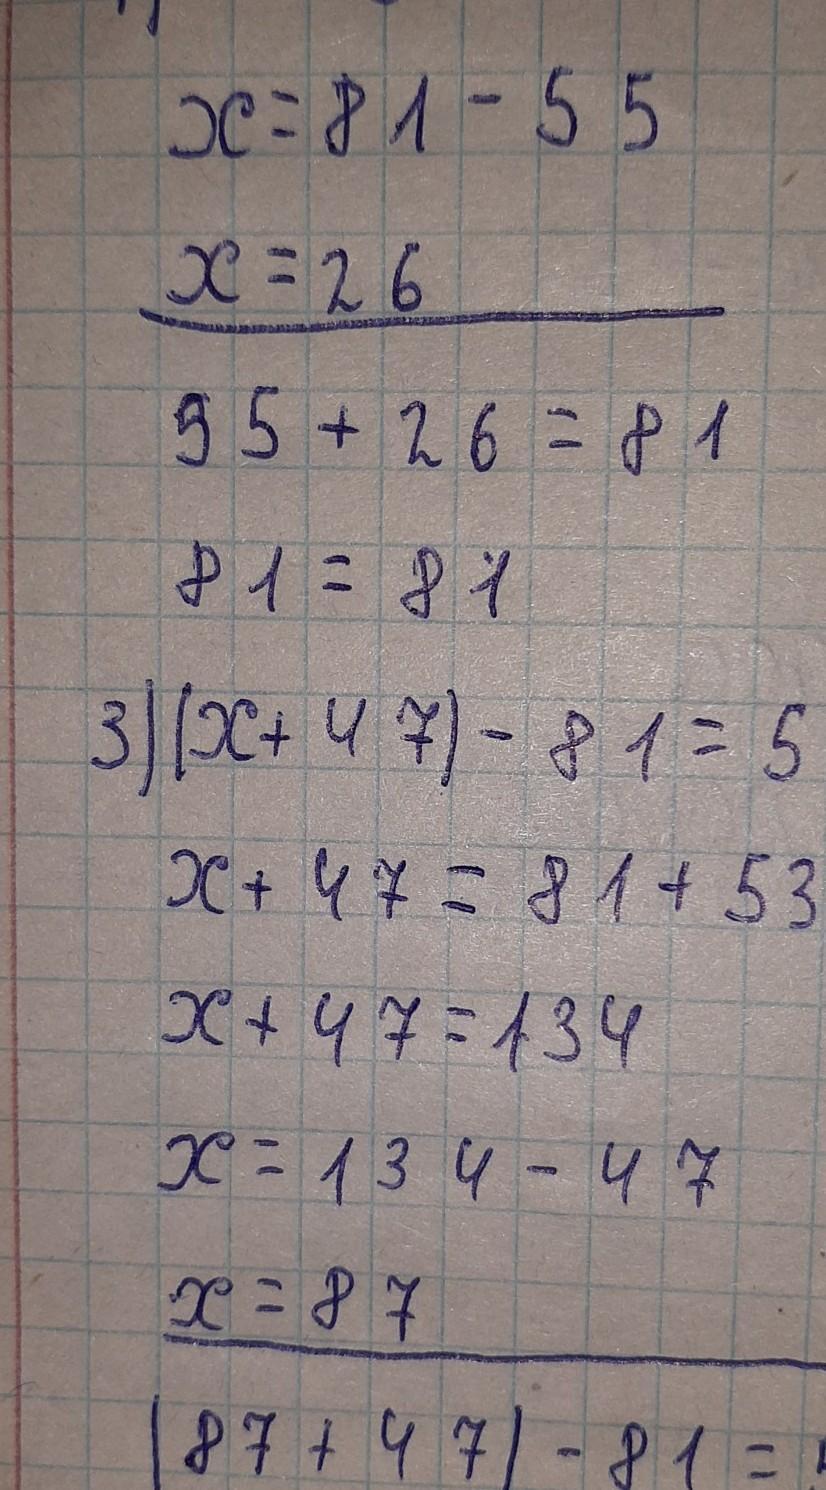 x = 81 - 55
x = 26
55 + 26 = 81
81 = 81
3) (x + 47) - 81 = 5
x + 47 = 81 + 53
x + 47 = 134
x = 134 - 47
x = 87
(87 + 47) - 81 =